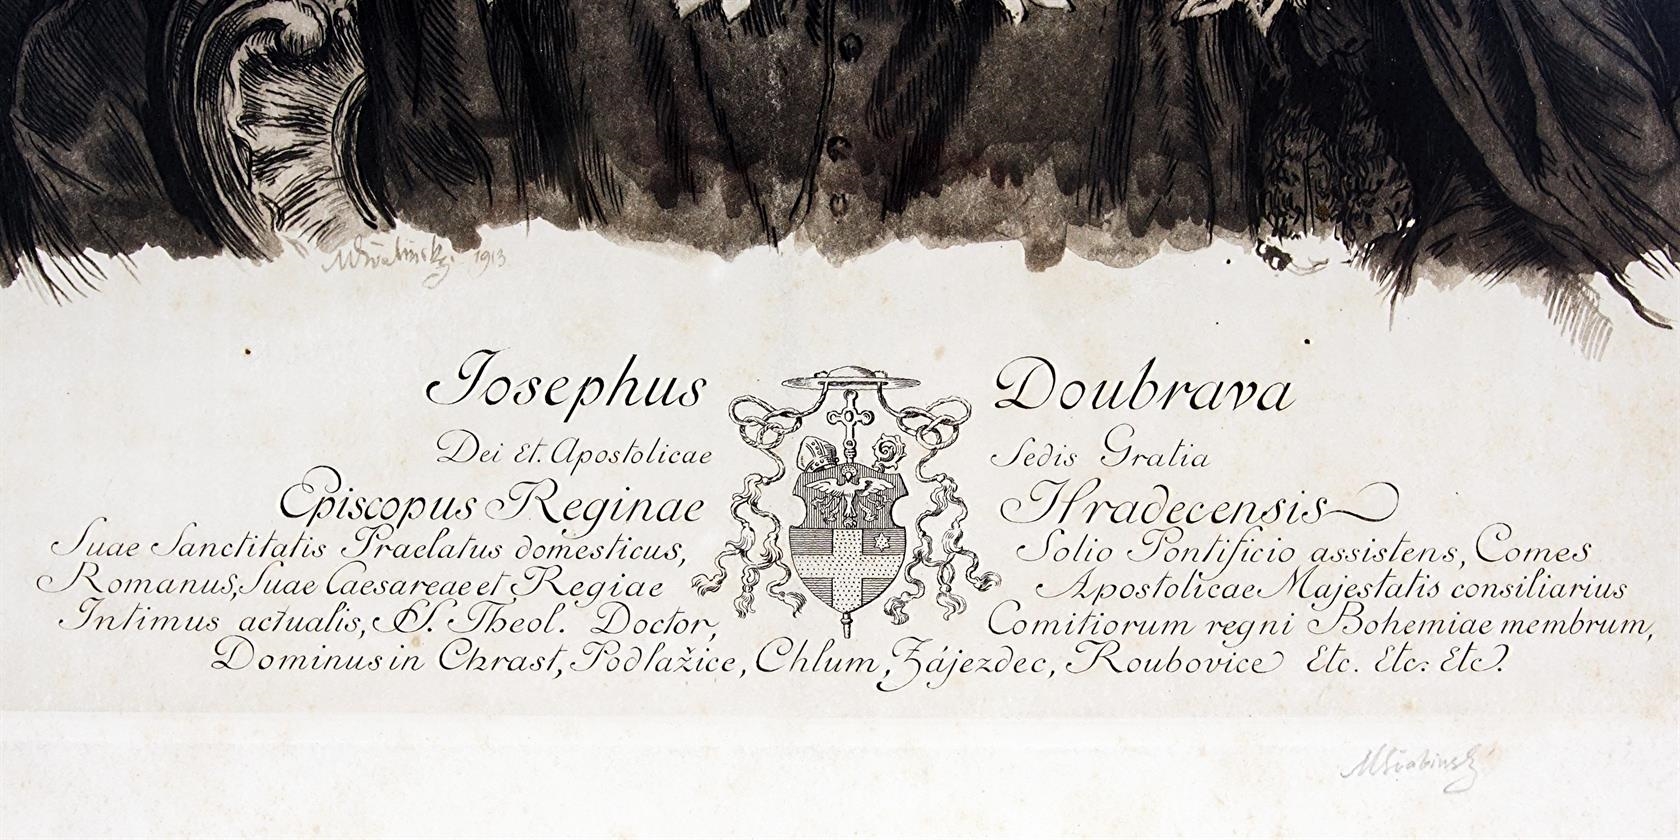 MŠvabinsky. 1913
Josephus Doubrava
Dei Et. Apostolicae Sedis Gratia
Episcopus Reginae Hradecensis
Suae Sanctitatis Praelatus domesticus, Solio Pontificio assistens, Comes
Romanus, Suae Caesareae et Regiae Apostolicae Majestatis consiliarius
Intimus actualis, SS. Theol. Doctor, Comitiorum regni Bohemiae membrum,
Dominus in Chrast, Podlažice, Chlum, Zájezdec, Roubovice Etc. Etc. Etc.
MŠvabinsky